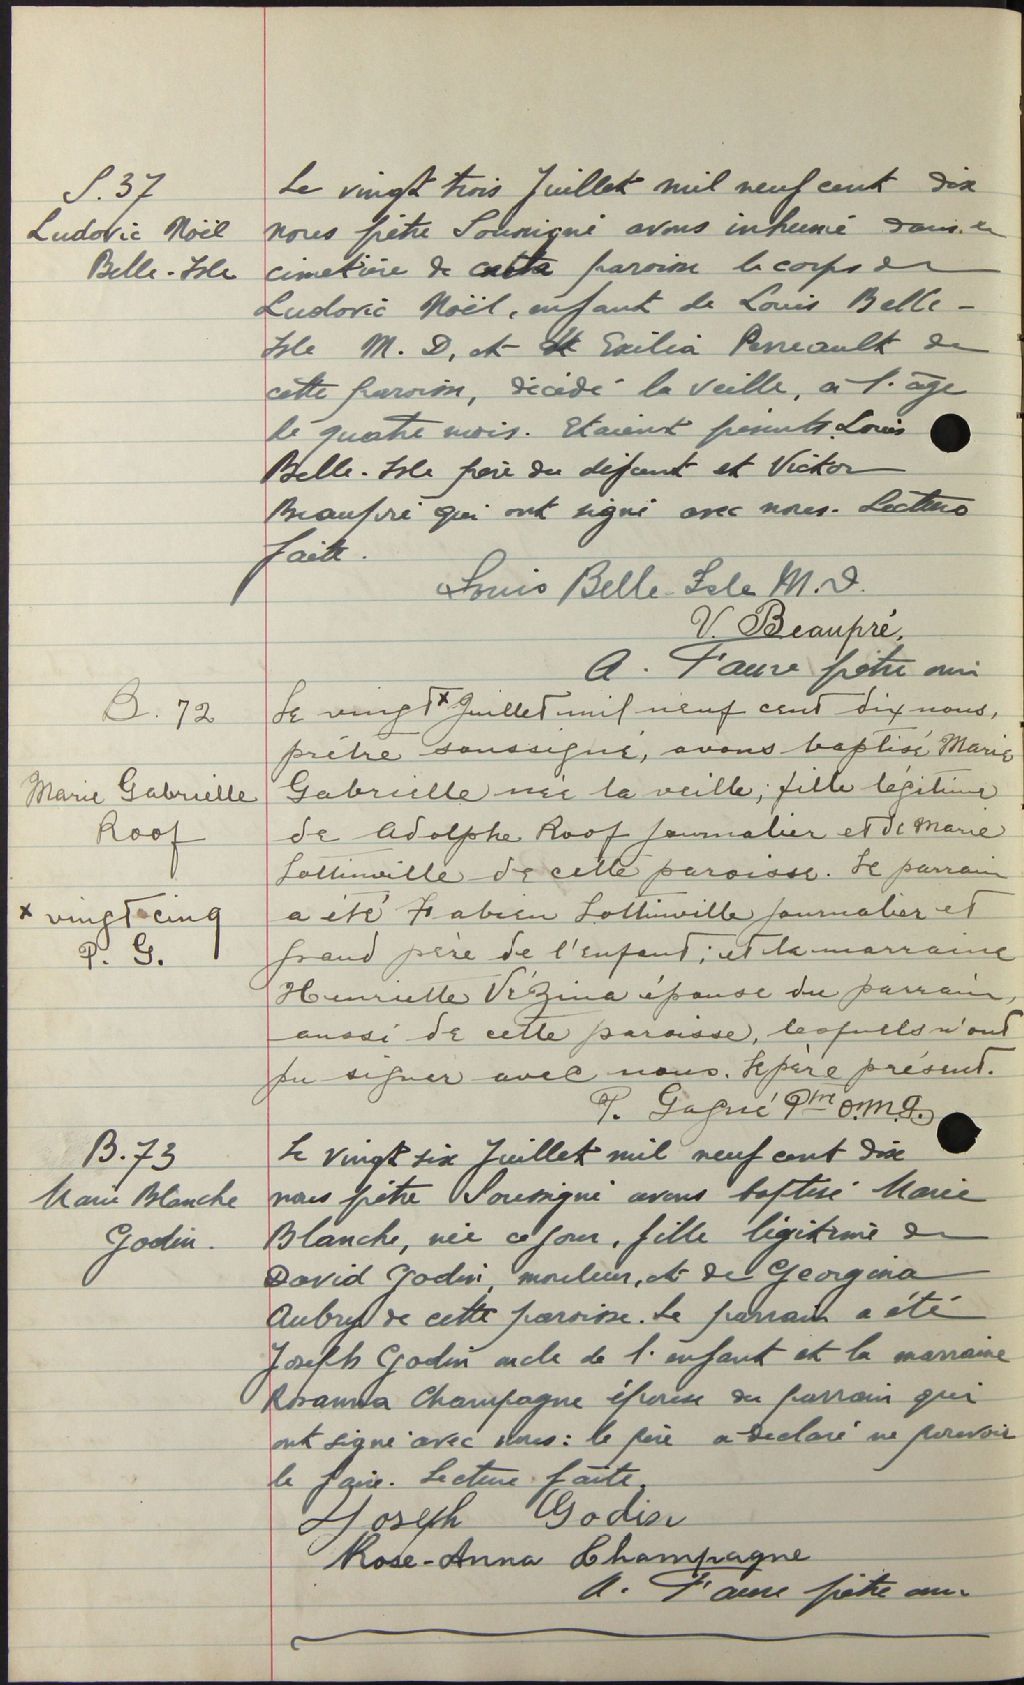 S. 37
Ludovic Noël
Belle-Isle
Le vingt trois Juillet mil neuf cent dix
nous prêtre Soussigné avons inhumé dans le
cimetière de cette paroisse le corps de
Ludovic Noël, enfant de Louis Belle-
Isle M. D, et Exilia Perreault de
cette paroisse, décédé la veille, à l'âge
de quatre mois. Etaient présents Louis
Belle-Isle père du défunt et Victor
Beaupré qui ont signé avec nous. Lecture
faite.
Louis Belle-Isle M.D.
V. Beaupré.
A. Faure prêtre omi
B. 72
Marie Gabrielle
Roof
x vingt-cinq
P. G.
Le vingt x Juillet mil neuf cent dix nous,
prêtre soussigné, avons baptisé Marie
Gabrielle née la veille, fille légitime
de Adolphe Roof journalier et de Marie
Lottinville de cette paroisse. Le parrain
a été Fabien Lottinville journalier et
grand père de l'enfant; et la marraine
Henriette Vézina épouse du parrain,
aussi de cette paroisse, lesquels n'ont
pu signer avec nous. Le père présent.
P. Gagné Ptre O.M.I.
B. 73
Marie Blanche
Godin.
Le vingt six Juillet mil neuf cent dix
nous prêtre Soussigné avons baptisé Marie
Blanche, née ce jour, fille légitime de
David Godin, mouleur, et de Georgina
Aubry de cette paroisse. Le parrain a été
Joseph Godin oncle de l'enfant et la marraine
Rosanna Champagne épouse du parrain qui
ont signé avec nous: le père a déclaré ne pouvoir
le faire. Lecture faite.
Joseph Godin
Rose-Anna Champagne
A. Faure prêtre omi